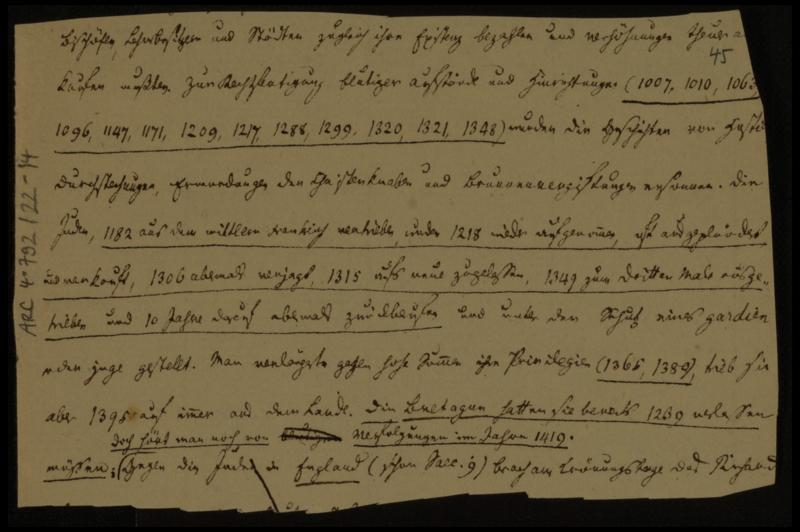 45
Bischöfen, Lehnsbesitzern und Städten zugleich ihre Existenz bezahlen und Verhöhnungen theuer
kaufen mußten. Zur Rechtfertigung blutiger Aufstände und Hinrichtungen (1007, 1010, 1063
1096, 1147, 1171, 1209, 1217, 1288, 1299, 1320, 1321, 1348) wurden die Geschichten von
Durchstechungen, Ermordungen der Christenknaben und Brunnenvergiftungen ersonnen. Die
Juden, 1182 aus dem mittlern Frankreich vertrieben, wurden 1218 wieder aufgenommen, oft ausgeplündert
und verkauft, 1306 abermals verjagt, 1315 aufs neue zugelassen, 1349 zum dritten Male ausge-
trieben und 10 Jahre darauf abermals zurückberufen und unter den Schutz eines gardien
oder juge gestellt. Man verlängerte gegen hohe Summen ihre Privilegien (1365, 1389), trieb sie
aber 1395 auf immer aus dem Lande. Die Bretagne hatten sie bereits 1239 verlassen
doch hört man noch von Verfolgungen im Jahre 1419.
müssen; Gegen die Juden in England (schon Saec. 9) brach am Krönungstage des Richard
ARC 4° 792 / Z2 - 14